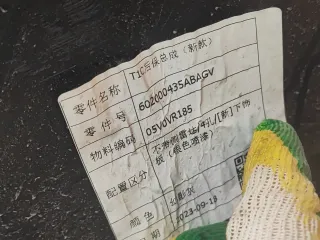 零件名称 T1C后保总成（新款）
零件号 602000435ABAGV
物料编码 05VdVR185
配置区分 不带侧雷达/4孔/[新]下物
板（银色喷漆）
颜色 幻影灰
期 2023-09-13